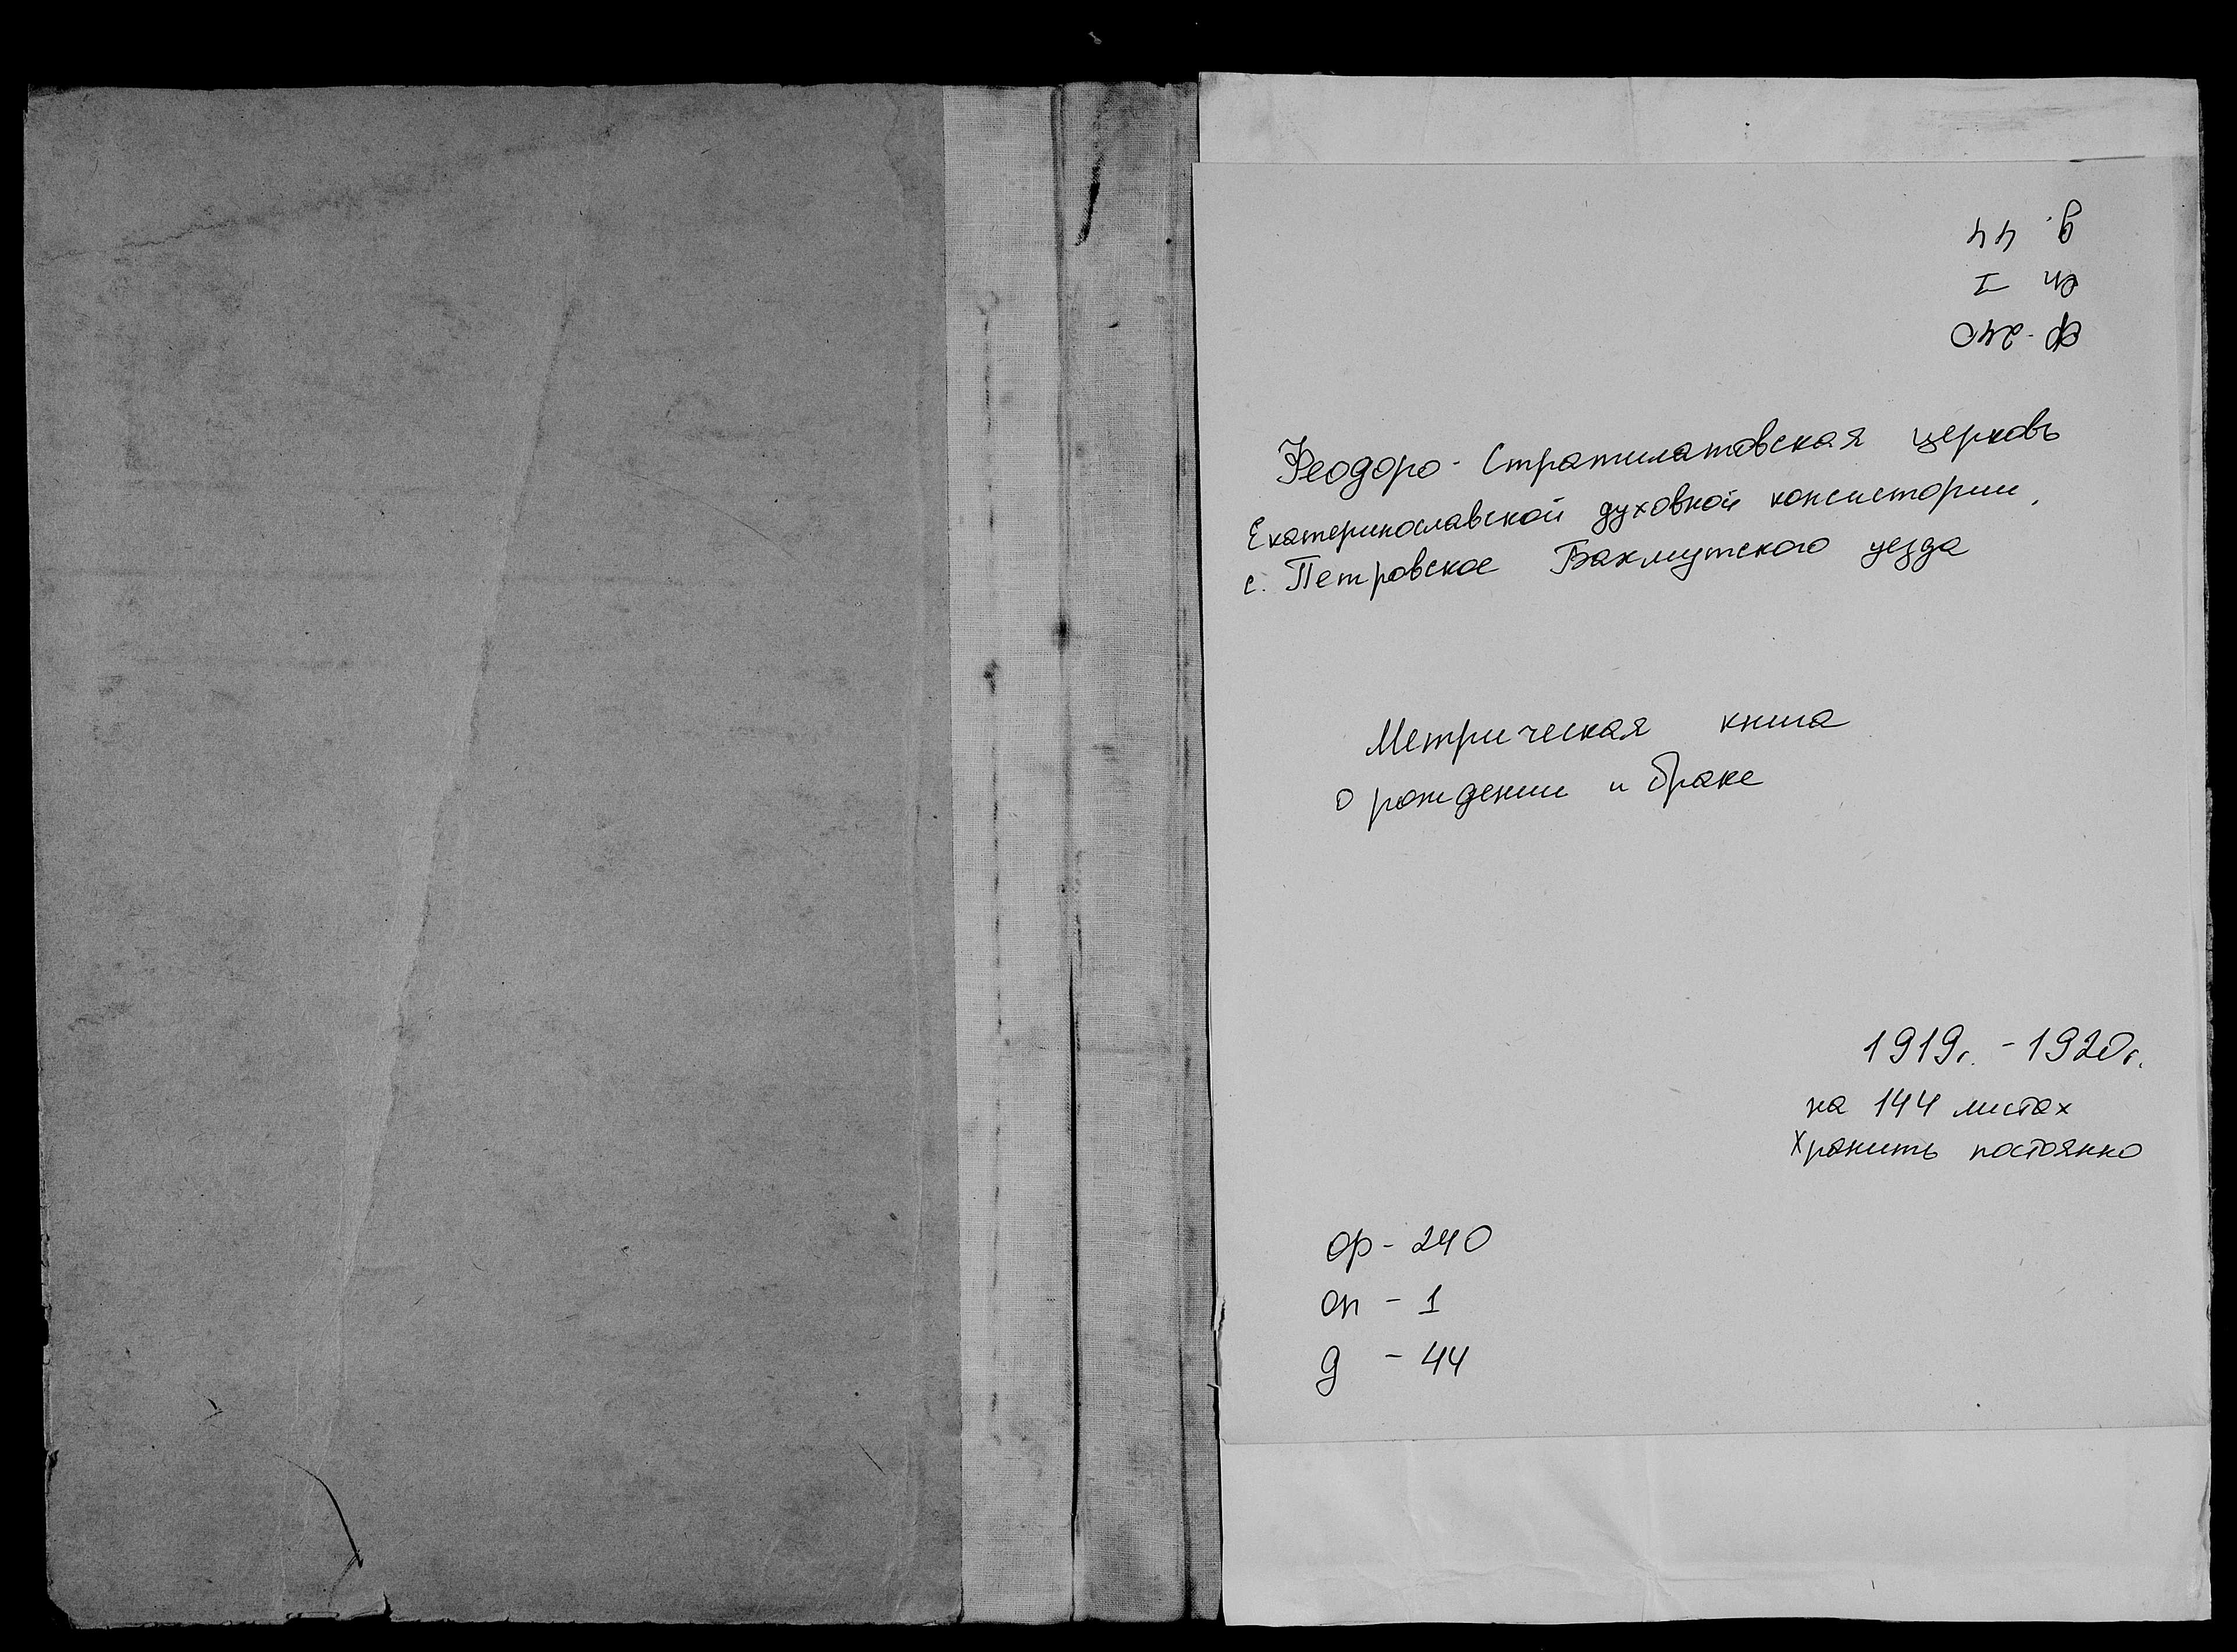 ф. 240
оп I
д. 44
Феодоро-Стратилатовская церковь
Екатеринославской духовной консистории,
с. Петровское Бахмутского уезда
Метрическая книга
о рождении и браке
1919г. - 1920г.
на 144 листах
Хранить постоянно
ф - 240
оп - 1
д - 44